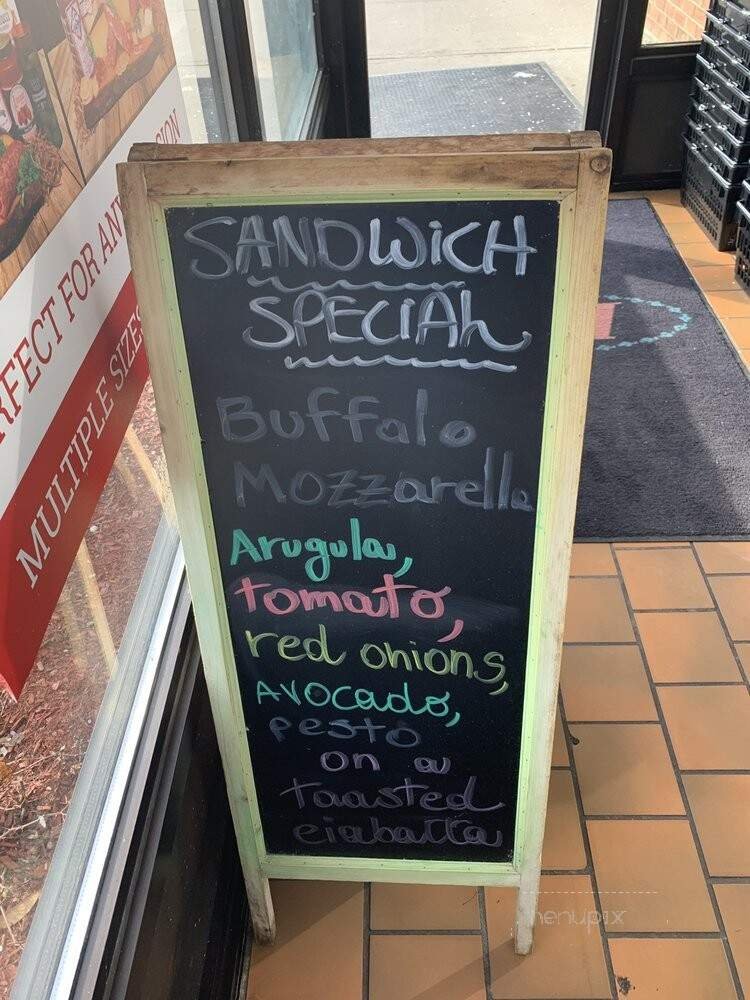 SANDWiCH
SPECiAL
Buffalo
Mozzarella
Arugula,
tomato,
red onions,
Avocado,
pesto
on a
Taasted
ciabatta
RFECT FOR AN
SION
MULTIPLE SIZES
menupix